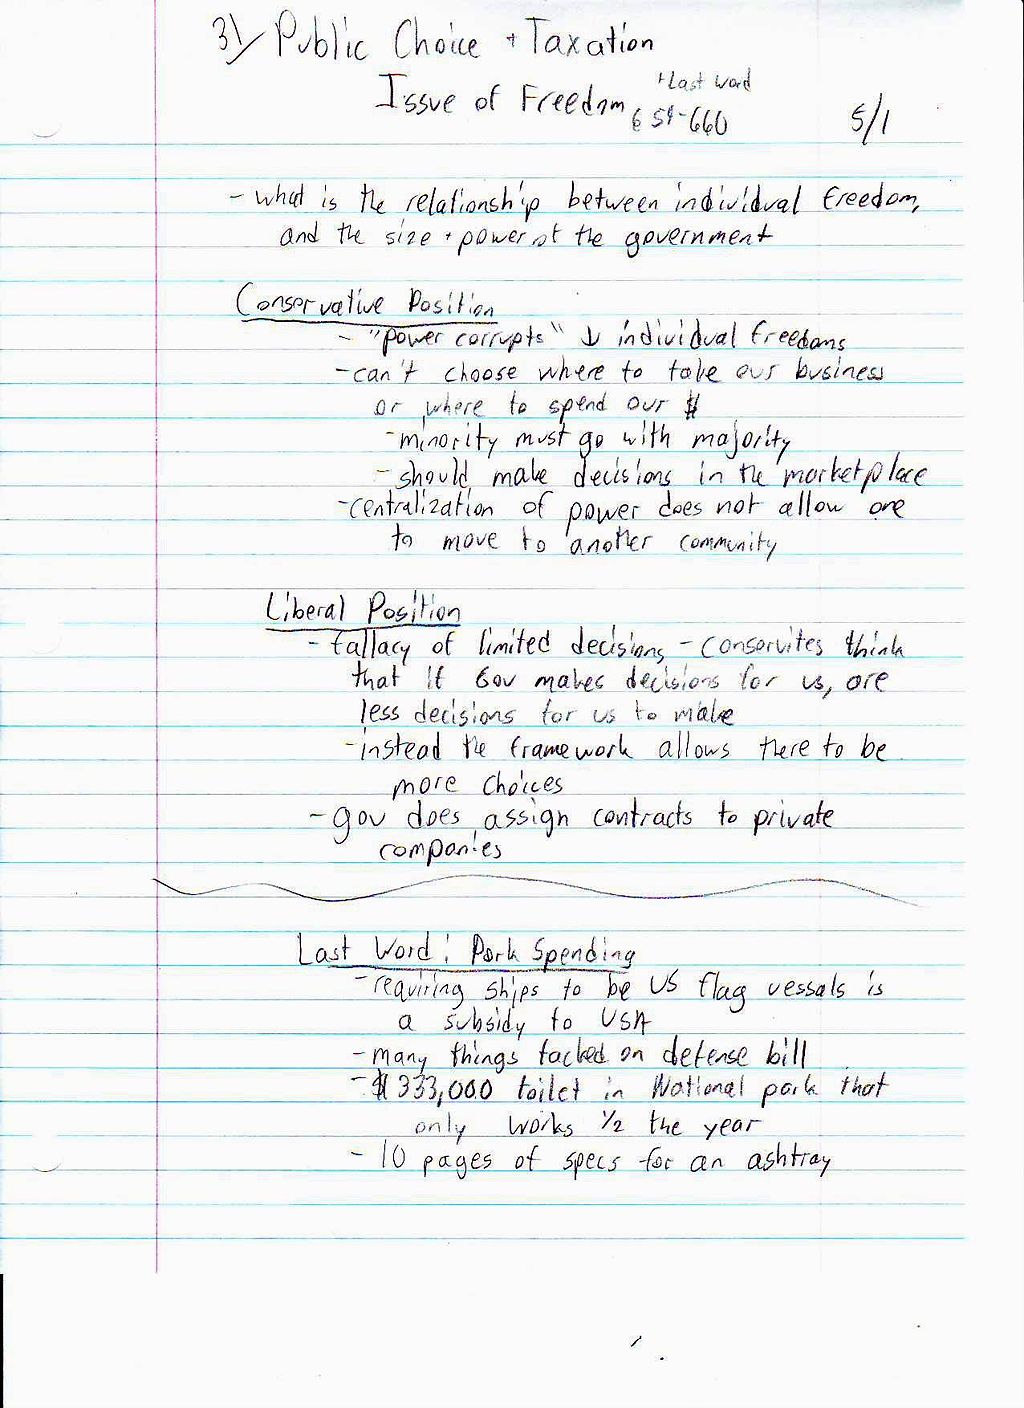 31/ Public Choice + Taxation
Issue of Freedom
+Last Word
659-660
5/1
- what is the relationship between individual freedom,
and the size + power of the government
Conservative Position
- "power corrupts" ↓ individual freedoms
- can't choose where to take our business
or where to spend our $
- minority must go with majority
- should make decisions in the marketplace
- centralization of power does not allow one
to move to another community
Liberal Position
- fallacy of limited decisions - conservites think
that if Gov makes decisions for us, are
less decisions for us to make
- instead the framework allows there to be
more choices
- gov does assign contracts to private
companies
Last Word: Pork Spending
- requiring ships to be US flag vessals is
a subsidy to USA
- many things tacked on defense bill
- $333,000 toilet in National park that
only works 1/2 the year
- 10 pages of specs for an ashtray